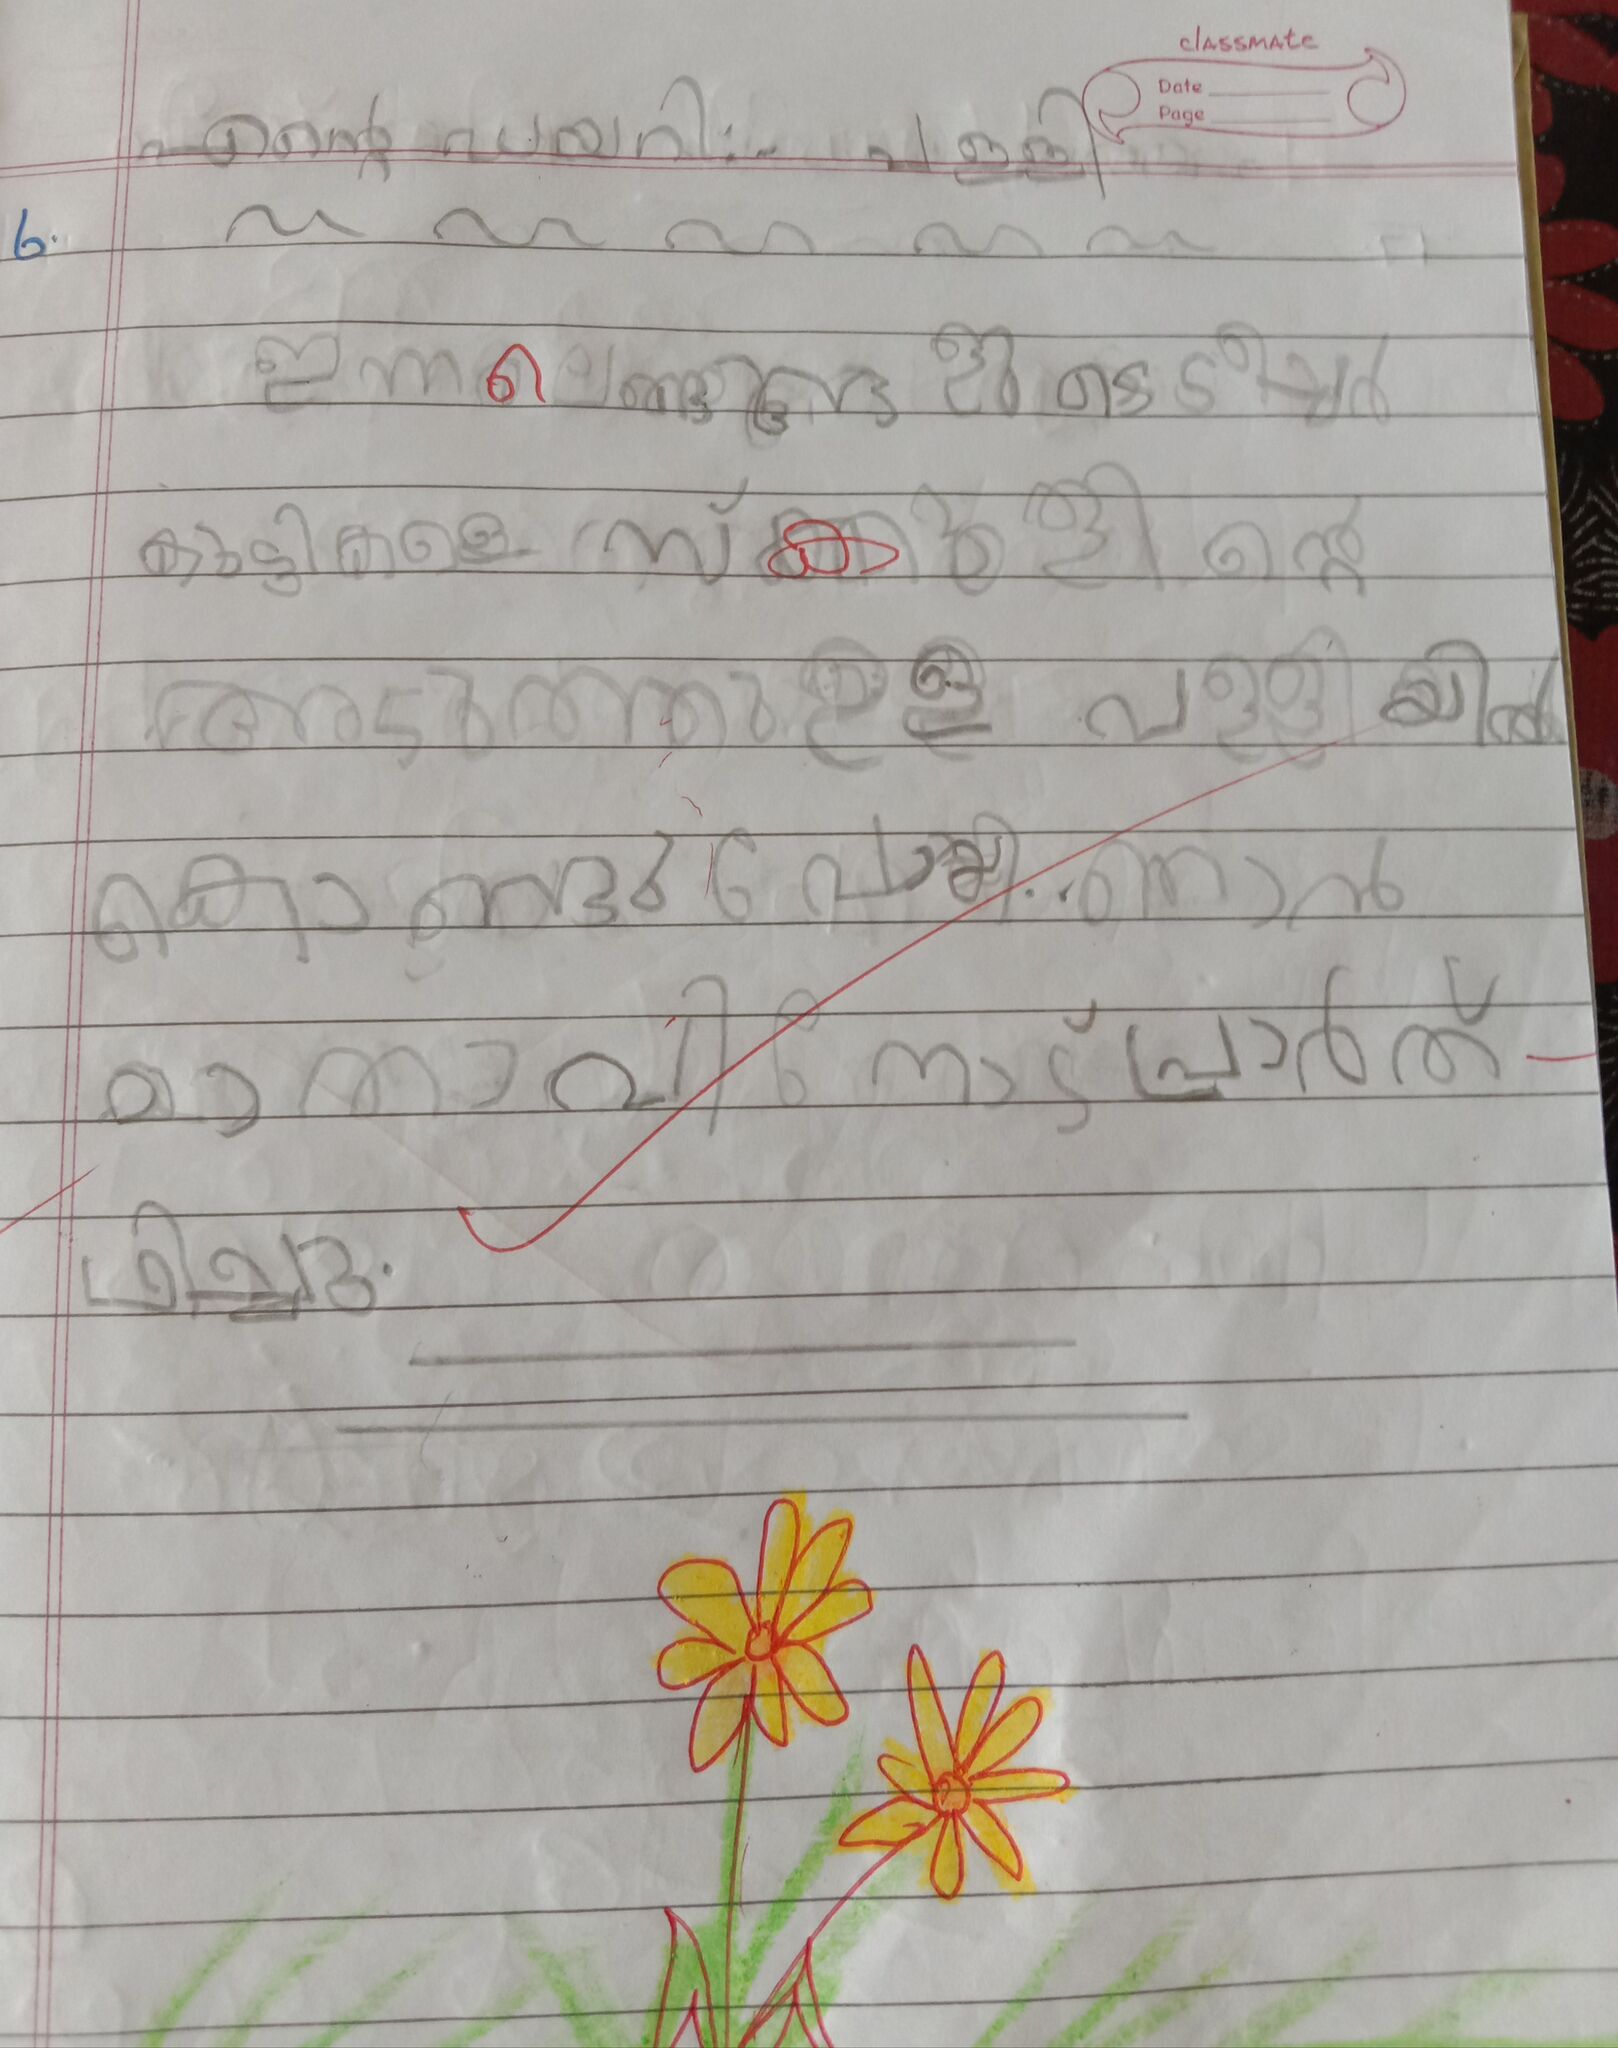 classmate
Date
Page
എന്റെ ഡയറി:- പള്ളി
6.
ഇന്നലെ ഞങ്ങളുടെ ടീച്ചർ
കുട്ടികളെ സ്കൂളിന്റെ
അടുത്തുള്ള പള്ളിയിൽ
കൊണ്ടുപോയി. ഞാൻ
മാതാവിനോട് പ്രാർത്
ഥിച്ചു.